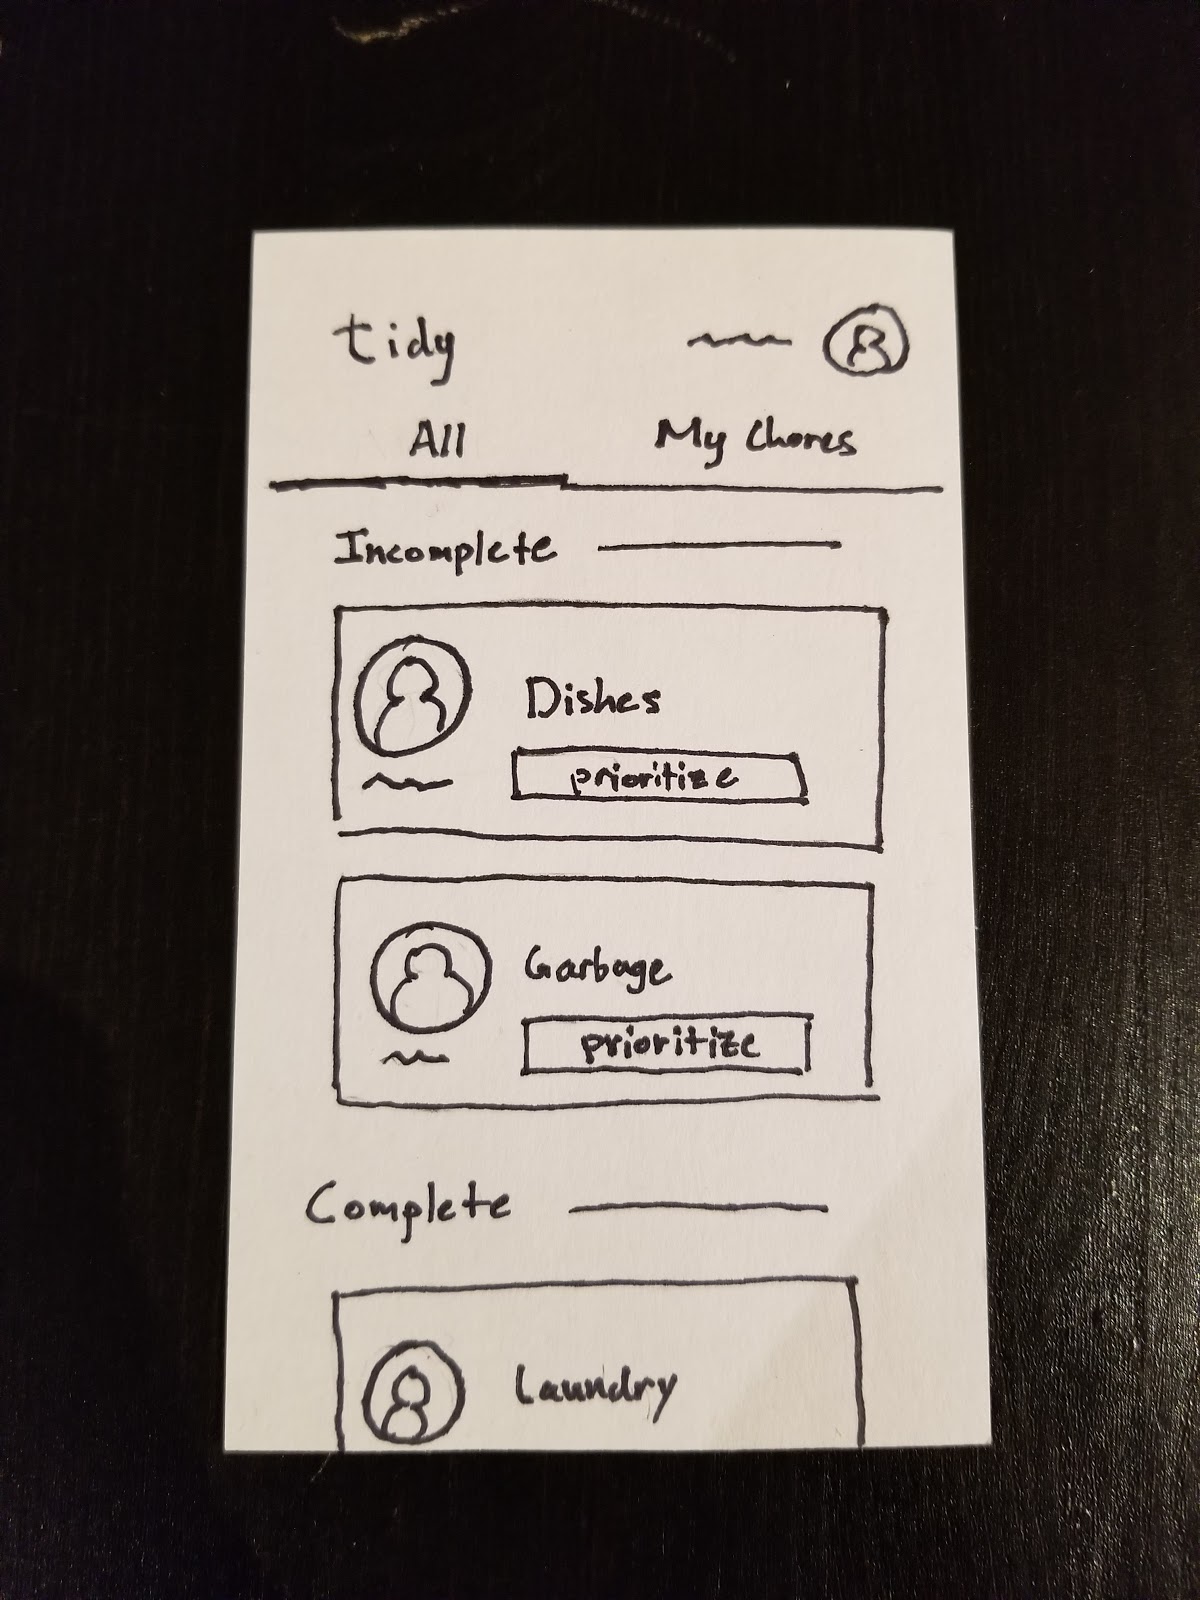 tidy
All
My Chores
Incomplete
Dishes
prioritize
Garbage
prioritize
Complete
Laundry